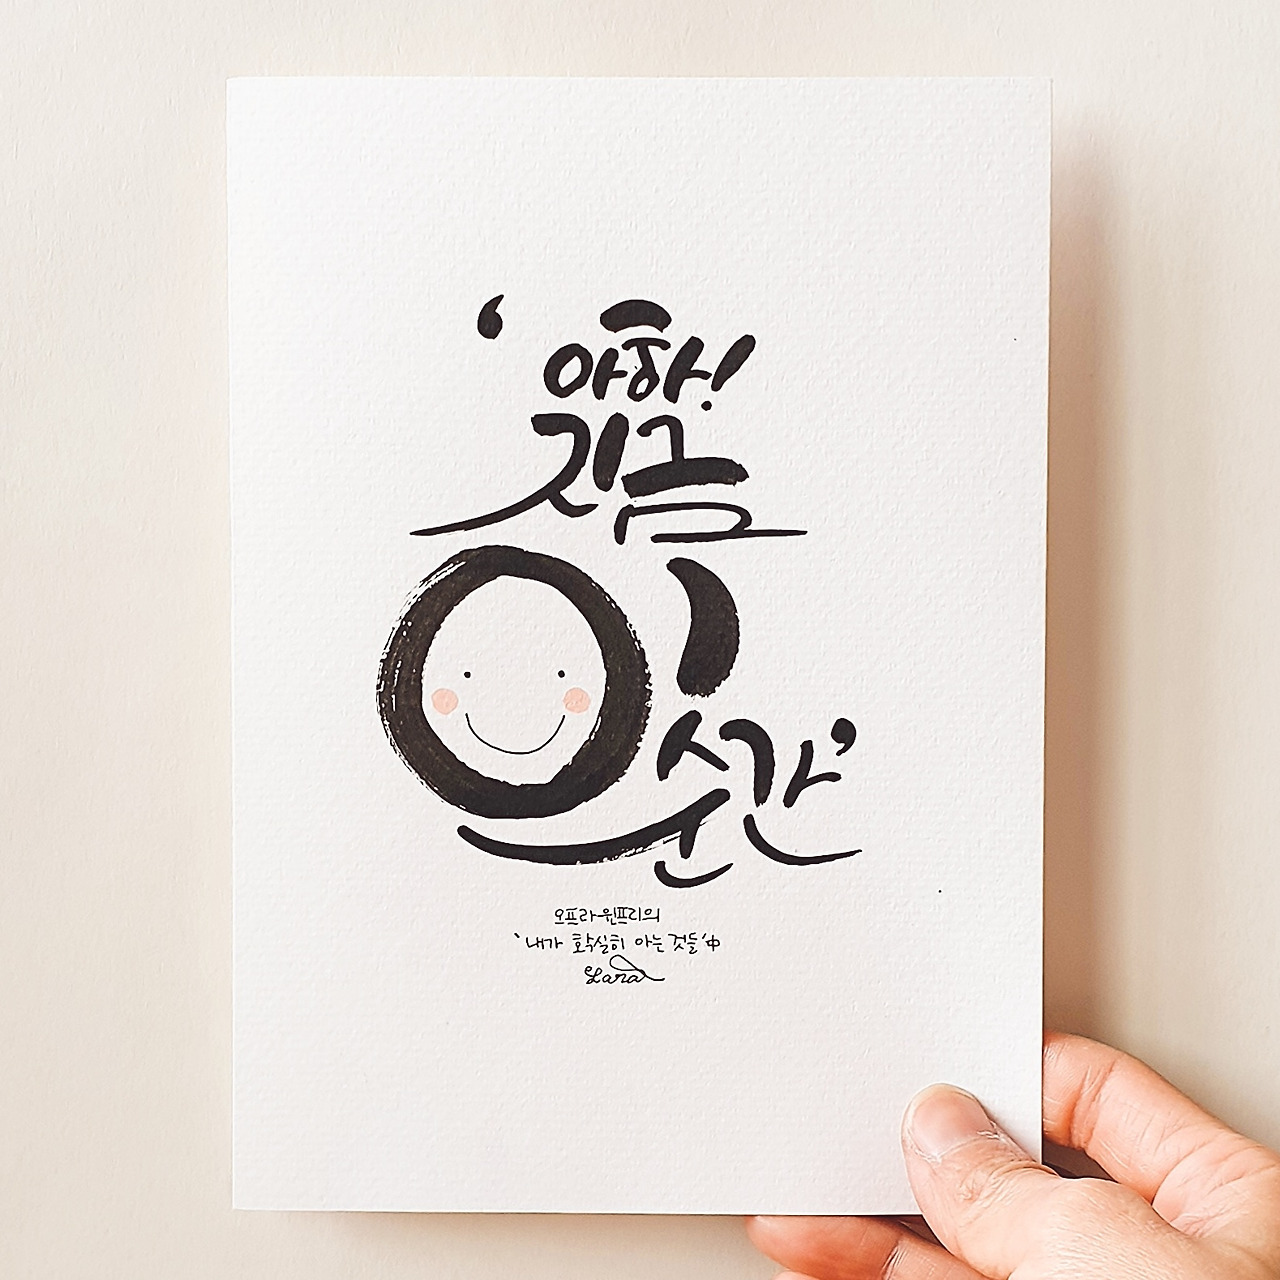 ‘아하!
지금
이
순간’
오프라 윈프리의
‘내가 확실히 아는 것들’中
Lara